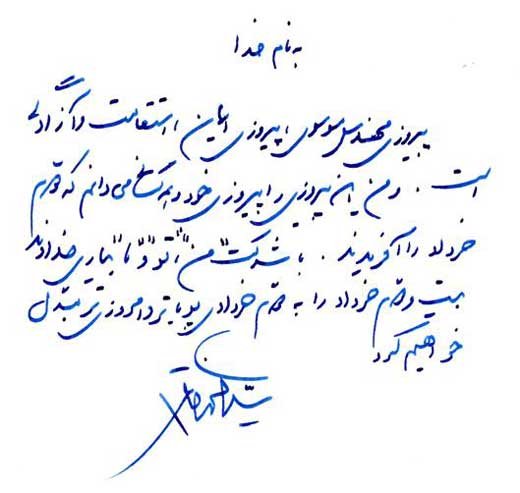 به نام خدا
پیروزی مهندس موسوی، پیروزی ایمان، استقامت و آزادگی
است. و من این پیروزی را پیروزی خود و همه کسانی می‌دانم که دوم
خرداد را آفریدند. با شرکت "من" و "تو" و "ما" بیاری خداوند
بیست و دوم خرداد را به دوم خردادی پویاتر و امروزی تر مبدل
خواهیم کرد
سید محمد خاتمی